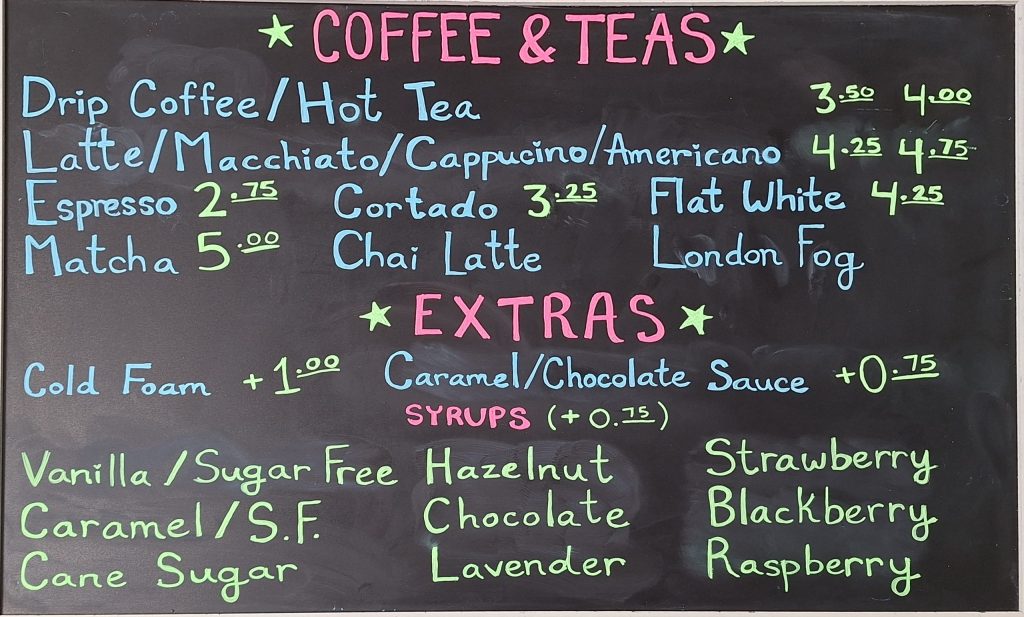 COFFEE & TEAS
Drip Coffee/Hot Tea 3.50 4.00
Latte/Macchiato/Cappucino/Americano 4.25 4.75
Espresso 2.75 Cortado 3.25 Flat White 4.25
Matcha 5.00 Chai Latte London Fog
EXTRAS
Cold Foam +1.00 Caramel/Chocolate Sauce +0.75
SYRUPS (+0.75)
Vanilla/Sugar Free Hazelnut Strawberry
Caramel/S.F. Chocolate Blackberry
Cane Sugar Lavender Raspberry